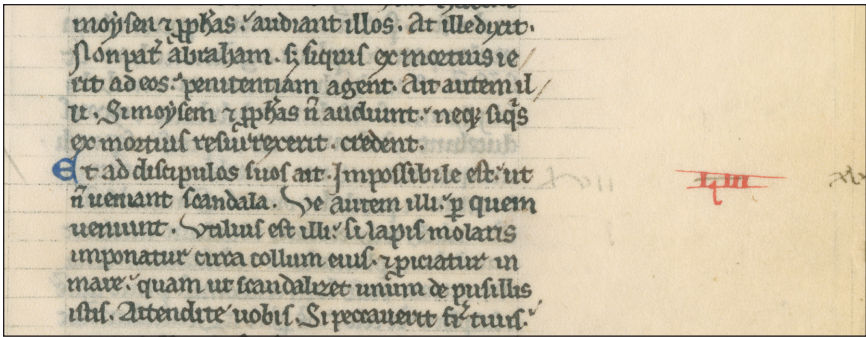 moẏsen ⁊ ꝓphas. audiant illos. At ille dixit.
Non pat̉ abraham. sꝫ siquis ex mortuis ie
rit ad eos. penitentiam agent. Ait autem il
li. Si moẏsem ⁊ ꝓphas n̄ audiunt. neqꝫ siq̇s
ex mortuis resurrexerit. credent.
Et ad discipulos suos ait. Impossibile est. ut
n̄ ueniant scandala. Ve autem illi. ꝑ quem
ueniunt. Vtilius est illi. si lapis molaris
imponatur circa collum eius. ⁊ ꝓiciatur in
mare. quam ut scandalizet unum de pusillis
istis. Attendite uobis. Si peccauerit fr̄ tuus.